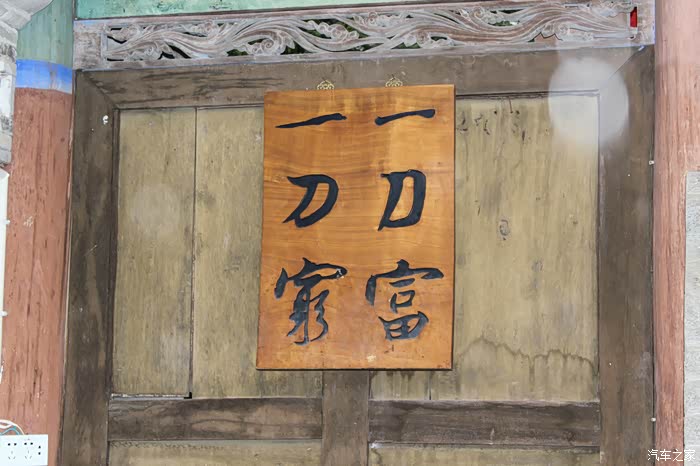 一刀富
一刀穷
汽车之家